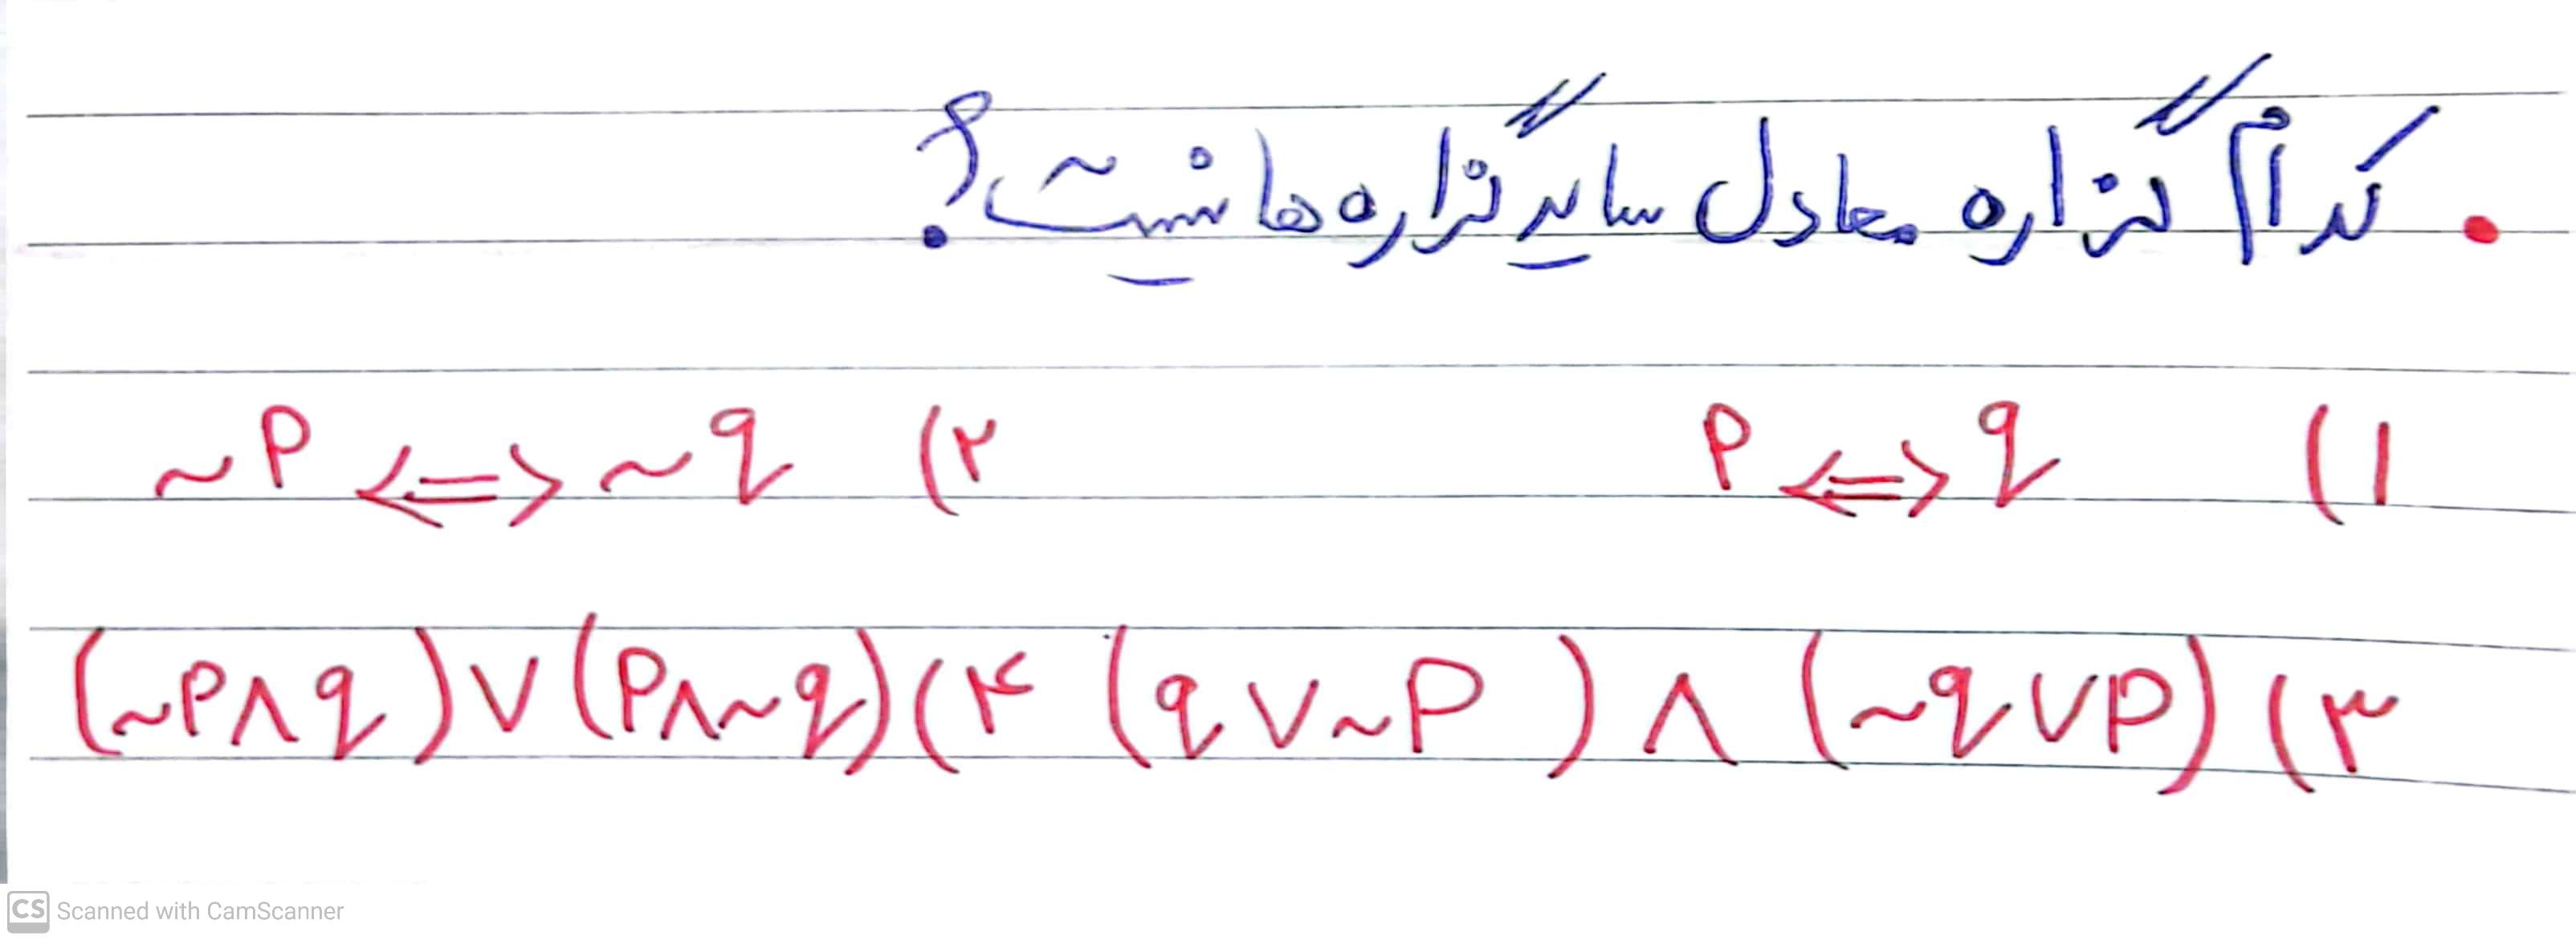 . کدام گزاره معادل سایر گزاره ها نیست؟
۱) p ⇔ q    ۲) ~p ⇔ ~q
۳) (q ∨ ~p) ∧ (~q ∨ p)    ۴) (~p ∧ q) ∨ (p ∧ ~q)
CS Scanned with CamScanner